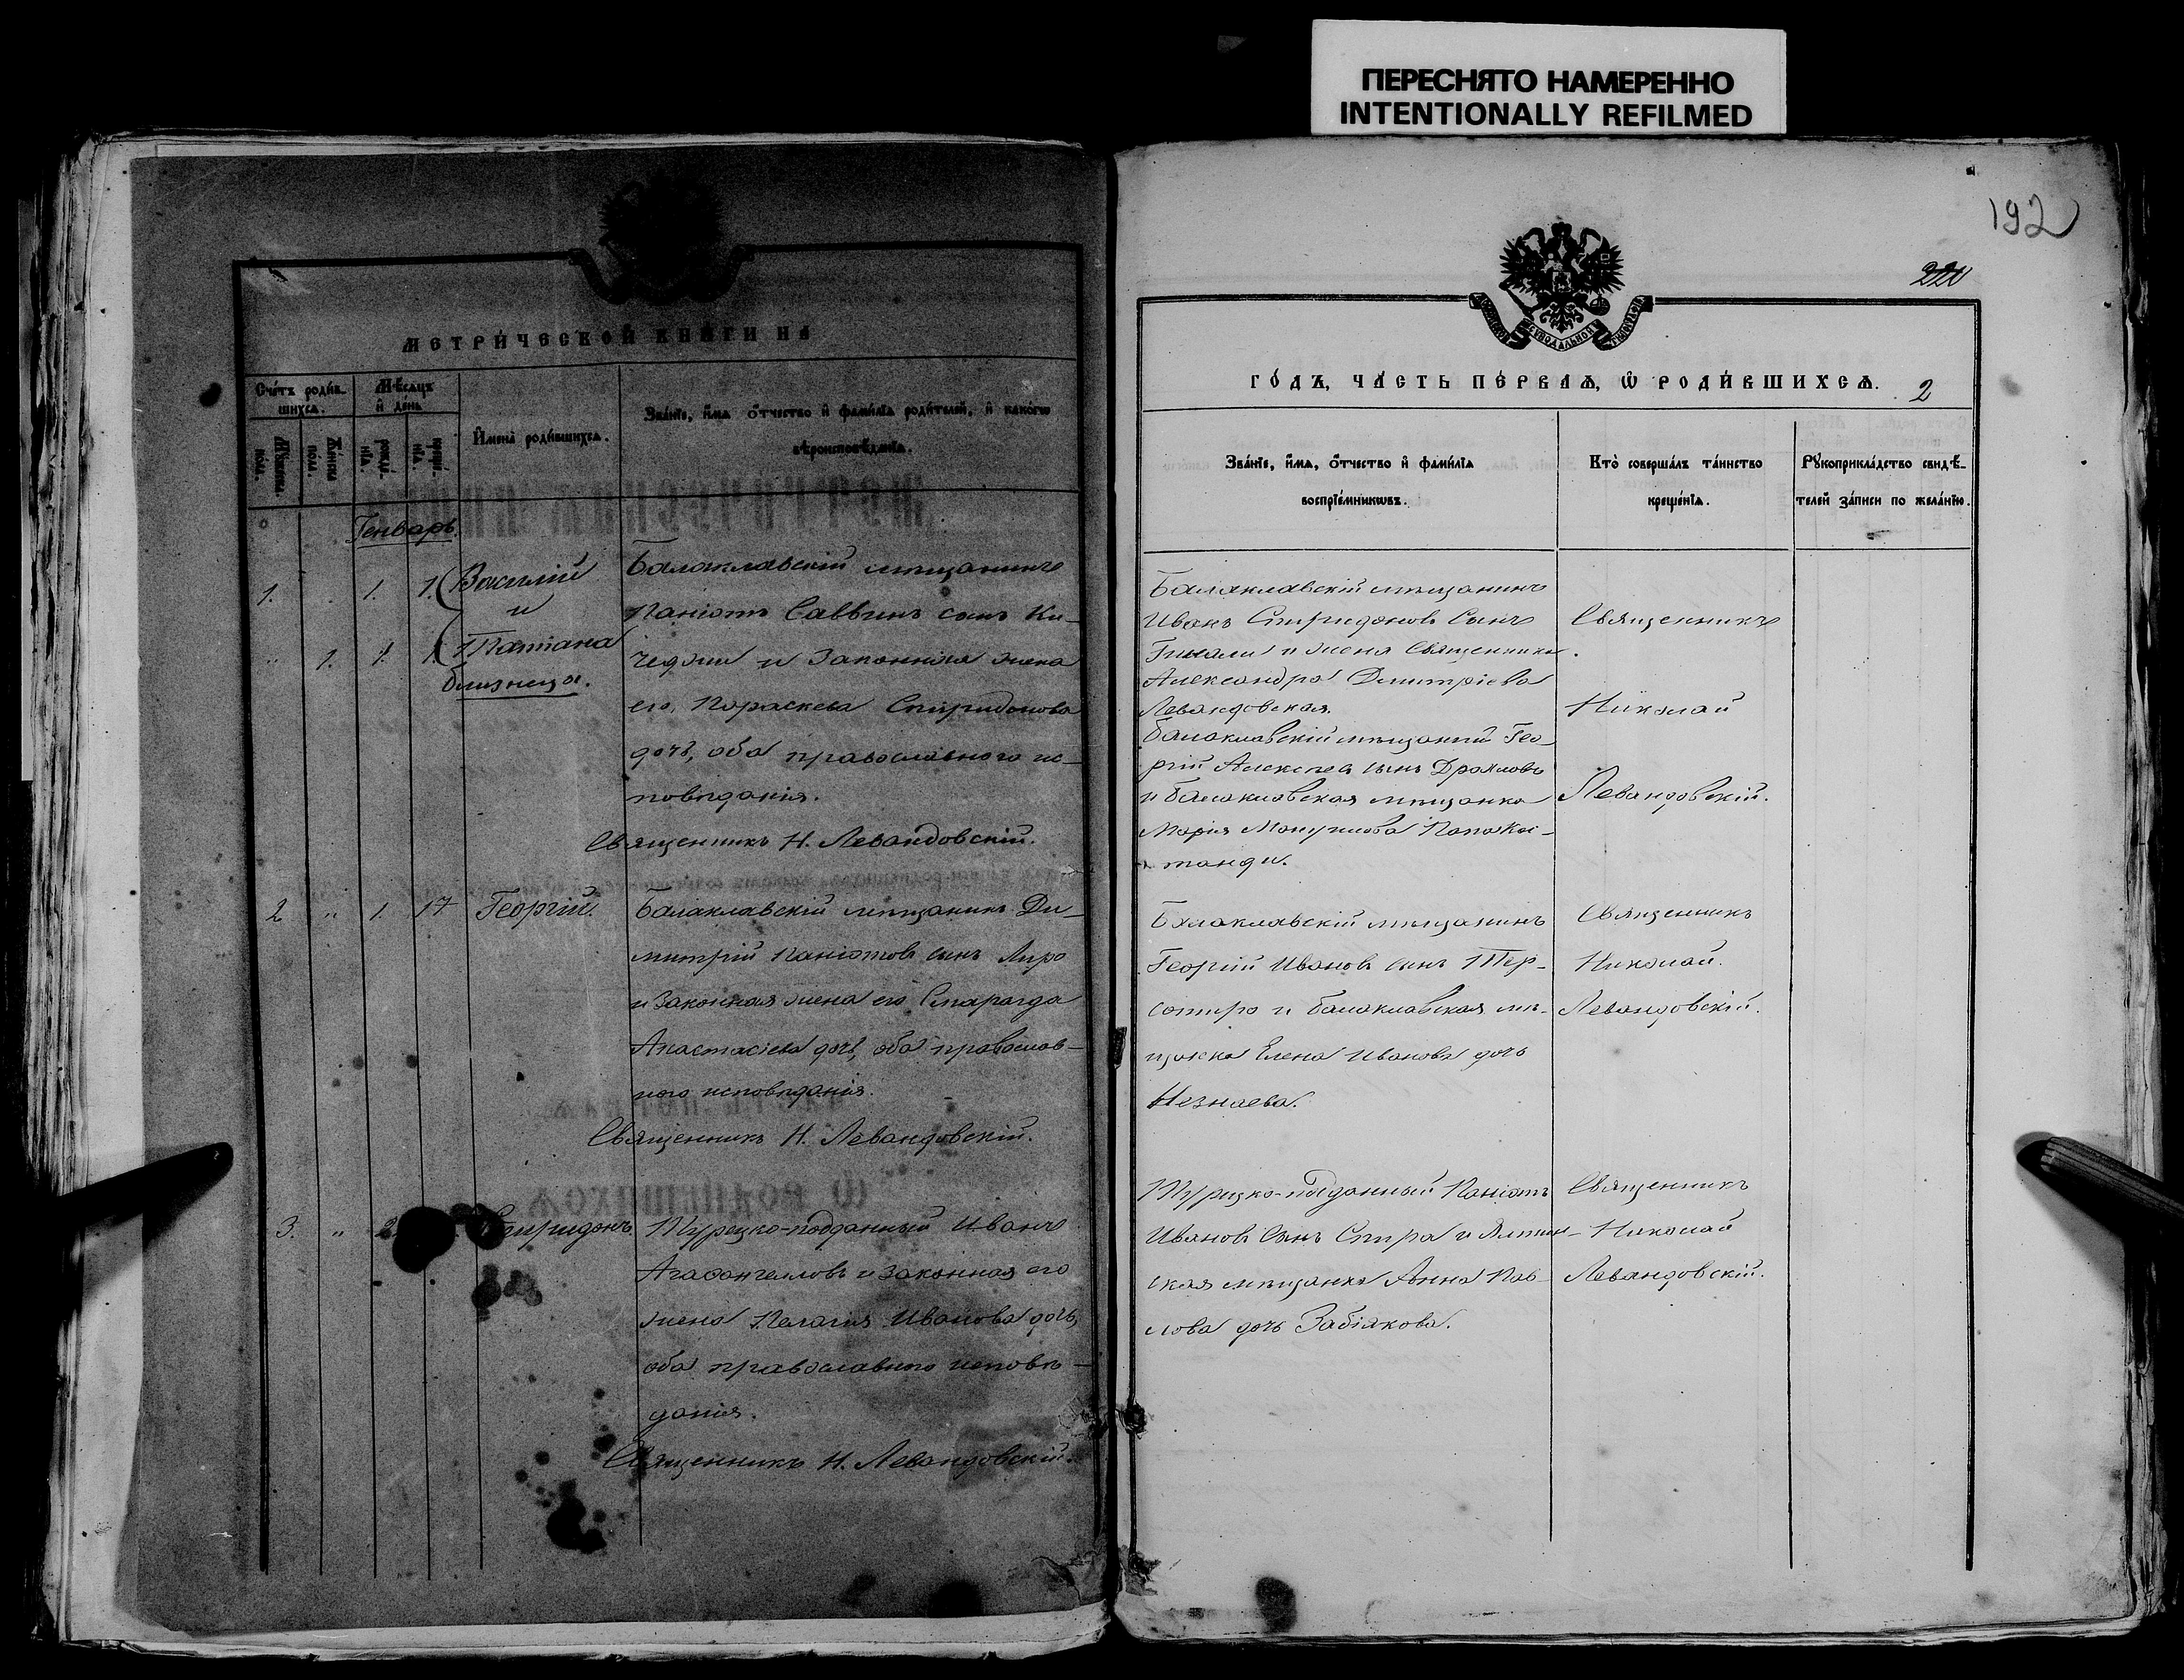 ПЕРЕСНЯТО НАМЕРЕННО
INTENTIONALLY REFILMED
192
220
МЕТРИ́ЧЕСКОЙ КНИ́ГИ НА
Сче́тъ роди́в-
шихсѧ.
Мѣ́сѧцъ
и҆ день
Мꙋжеска
пола.
Же́нска
пола.
рожде́-
нїѧ.
креще́-
нїѧ.
И҆мена̀ роди́вшихсѧ.
Зва́нїе, и҆́мѧ ѻ҆́тчество и҆ фами́лїѧ роди́телей, и҆ како́гѡ
вѣроисповѣ́данїѧ.
Генварь.
1. 1. 1. Василій
и
" 1. 1. 1. Татіана
близнеца.
Балаклавскій мѣщанинъ
Паніотъ Саввинъ сынъ Ки-
чеджи и законная жена
его, Параскева Спиридонова
дочь, оба православнаго ис-
повѣданія.
Священникъ Н. Левандовскій.
2 " 1. 17 Георгій.
Балаклавскій мѣщанинъ Ди-
митрій Паніотовъ сынъ Лиро
и законная жена его Смарагда
Анастасіева дочь, оба православ-
наго исповѣданія.
Священникъ Н. Левандовскій.
3. " 2. Спиридонъ.
Турецко-подданный Иванъ
Агафангеловъ и законная его
жена Пелагія Иванова дочь,
оба православнаго исповѣ-
данія.
Священникъ Н. Левандовскій.
ГО́ДЪ, ЧА́СТЬ ПЕ́РВАѦ, Ѡ҆ РОДИ́ВШИХСѦ.
2
Зва́нїе, и҆́мѧ, ѻ҆́тчество и҆ фами́лїѧ
воспрїе́мникѡвъ.
Кто̀ соверша́лъ та́инство
креще́нїѧ.
Рꙋкоприкла́дство свидѣ́-
телей за́писи по жела́нїю.
Балаклавскій мѣщанинъ
Иванъ Спиридоновъ Сынъ
Гинали и жена Священника
Александра Димитріева
Левандовская.
Балаклавскій мѣщанинъ Гео-
ргій Алексѣевъ сынъ Драхловъ
и балаклавская мѣщанка
Марія Мануилова Папакос-
танди.
Священникъ
Николай
Левандовскій.
Балаклавскій мѣщанинъ
Георгій Ивановъ сынъ Тер-
сотиро и балаклавская мѣ-
щанка Елена Иванова дочь
Незнаева.
Священникъ
Николай.
Левандовскій.
Турецко-подданный Паніотъ
Ивановъ Сынъ Спира и Ялтин-
ская мѣщанка Анна Пав-
лова дочь Забіякова.
Священникъ
Николай
Левандовскій.